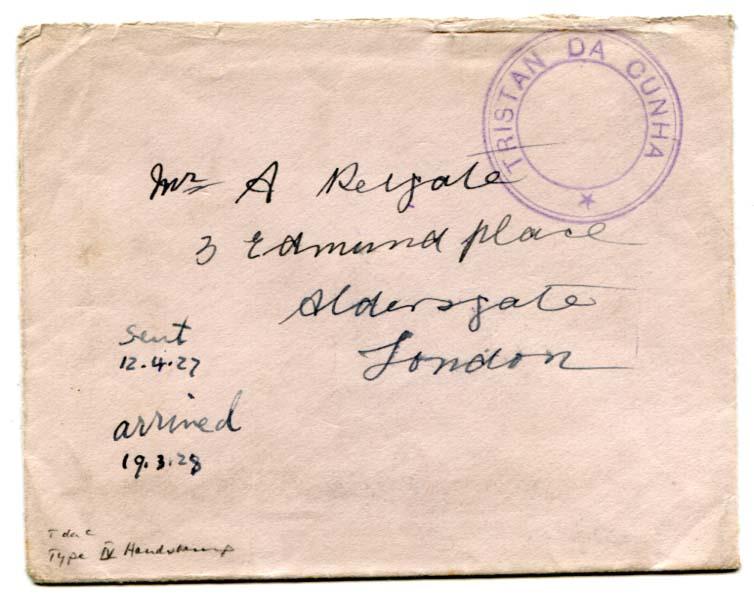 TRISTAN DA CUNHA
Mr A Reigate
3 Edmund place
Aldersgate
London
sent
12.4.27
arrived
19.3.28
T da C
Type IV Handstamp